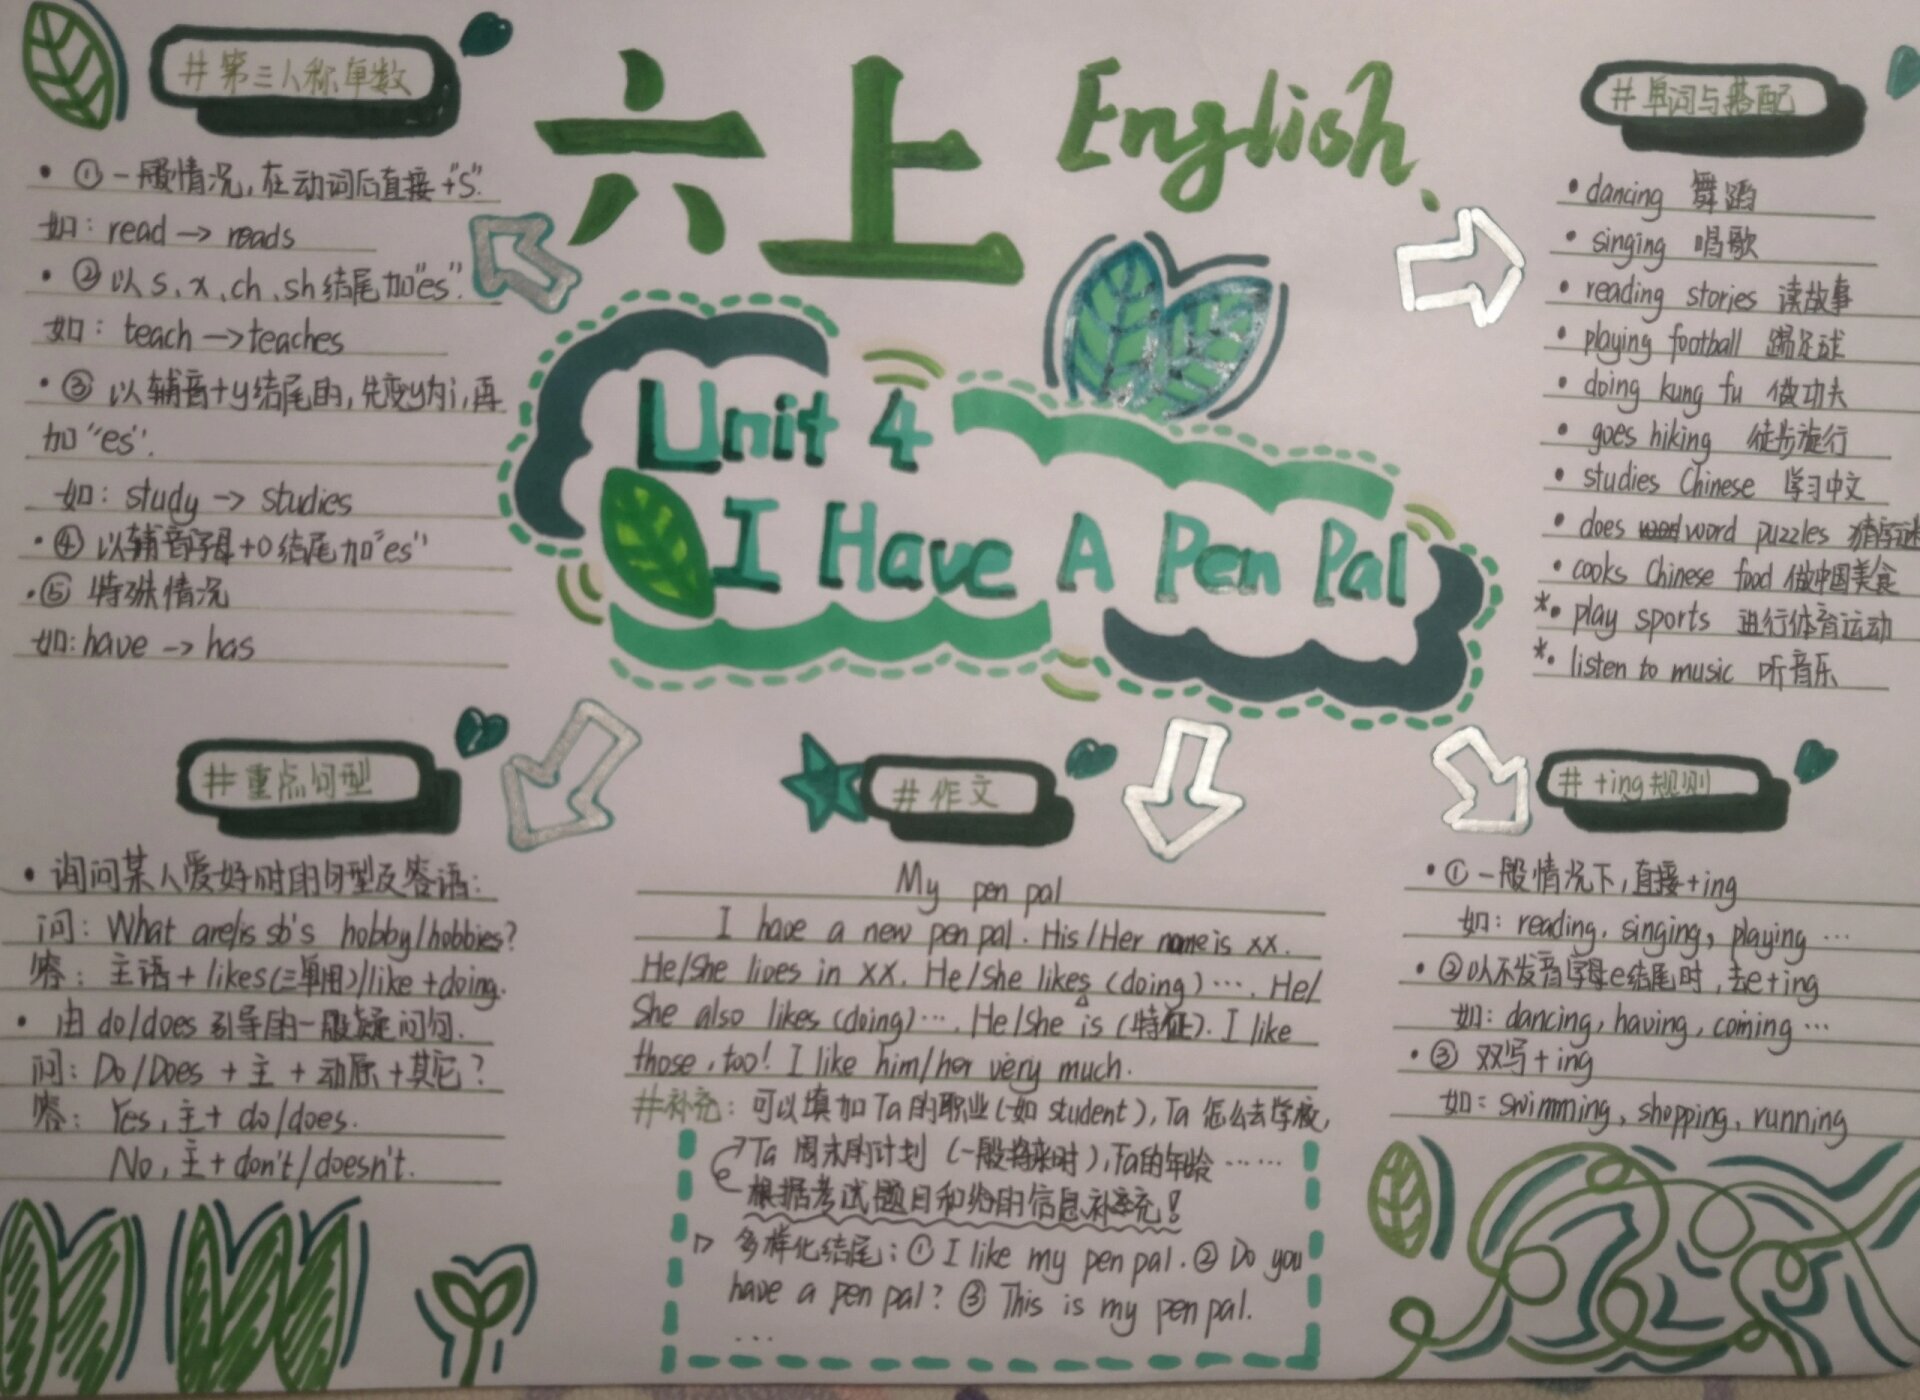 六上 English.
Unit 4
I Have A Pen Pal
#第三人称单数
• ①一般情况,在动词后直接+"s".
如: read → reads
• ②以s、x、ch、sh结尾加"es".
如: teach → teaches
• ③以辅音+y结尾的,先变y为i,再
加"es".
如: study → studies
• ④以辅音字母+o结尾加"es"
• ⑤特殊情况
如: have → has
#单词与搭配
• dancing 舞蹈
• singing 唱歌
• reading stories 读故事
• playing football 踢足球
• doing kung fu 做功夫
• goes hiking 徒步旅行
• studies Chinese 学习中文
• does word puzzles 猜字谜
• cooks Chinese food 做中国美食
*• play sports 进行体育运动
*• listen to music 听音乐
#重点句型
• 询问某人爱好时的句型及答语:
问: What are/is sb's hobby/hobbies?
答: 主语+likes(三单用)/like+doing.
• 由do/does引导的一般疑问句.
问: Do/Does+主+动原+其它?
答: Yes,主+do/does.
No,主+don't/doesn't.
#作文
My pen pal
I have a new pen pal. His/Her name is xx.
He/She lives in xx. He/She likes (doing)…. He/
She also likes (doing)…. He/She is (特征). I like
those, too! I like him/her very much.
#补充: 可以填加Ta的职业(如student),Ta怎么去学校,
Ta周末的计划(一般将来时),Ta的年龄……
根据考试题目和给的信息补充!
多样化结尾: ① I like my pen pal. ② Do you
have a pen pal? ③ This is my pen pal.
…
#+ing规则
• ①一般情况下,直接+ing
如: reading, singing, playing…
• ②以不发音字母e结尾时,去e+ing
如: dancing, having, coming…
• ③双写+ing
如: swimming, shopping, running